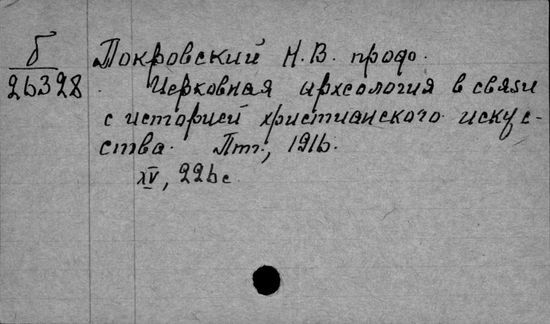 Б
26328
Покровский Н.В. проф.
Церковная археология в связи
с историей христианского искус-
ства. Птг., 1916.
XV, 226 с.